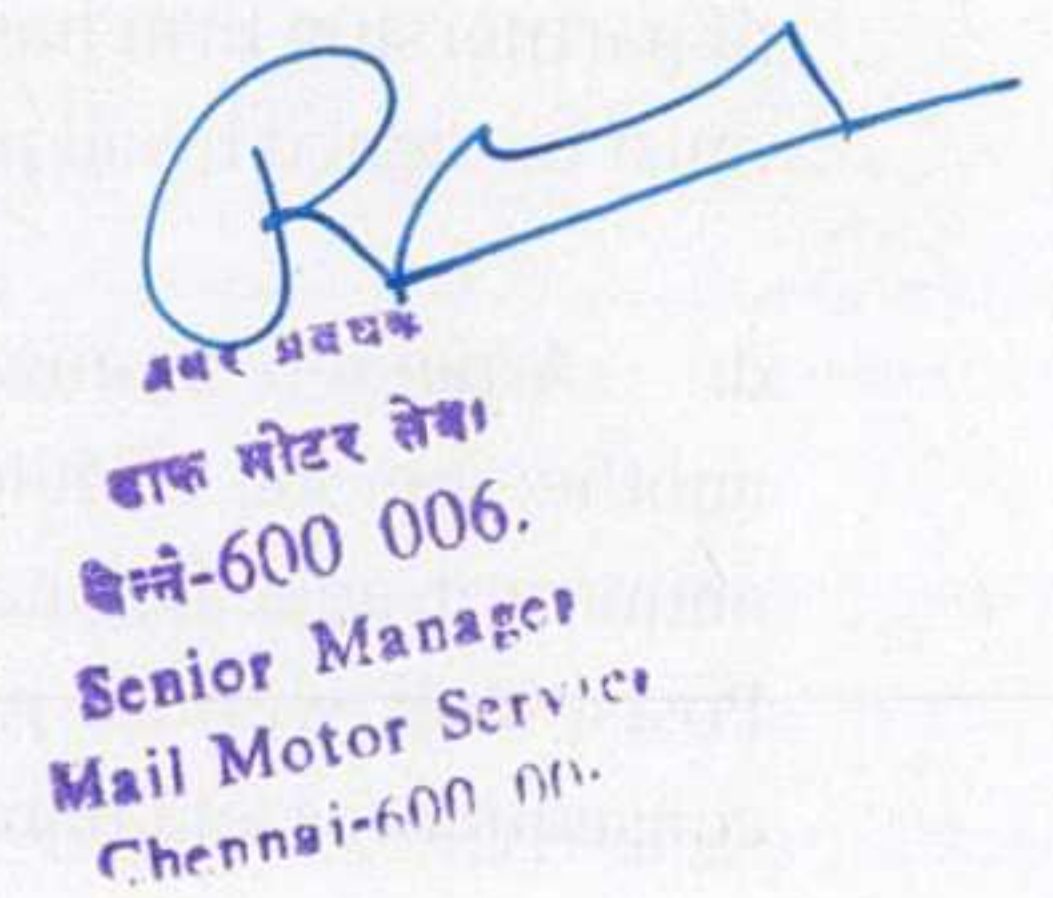 प्रवर प्रबंधक
डाक मोटर सेवा
चेन्नै-600 006.
Senior Manager
Mail Motor Service
Chennai-600